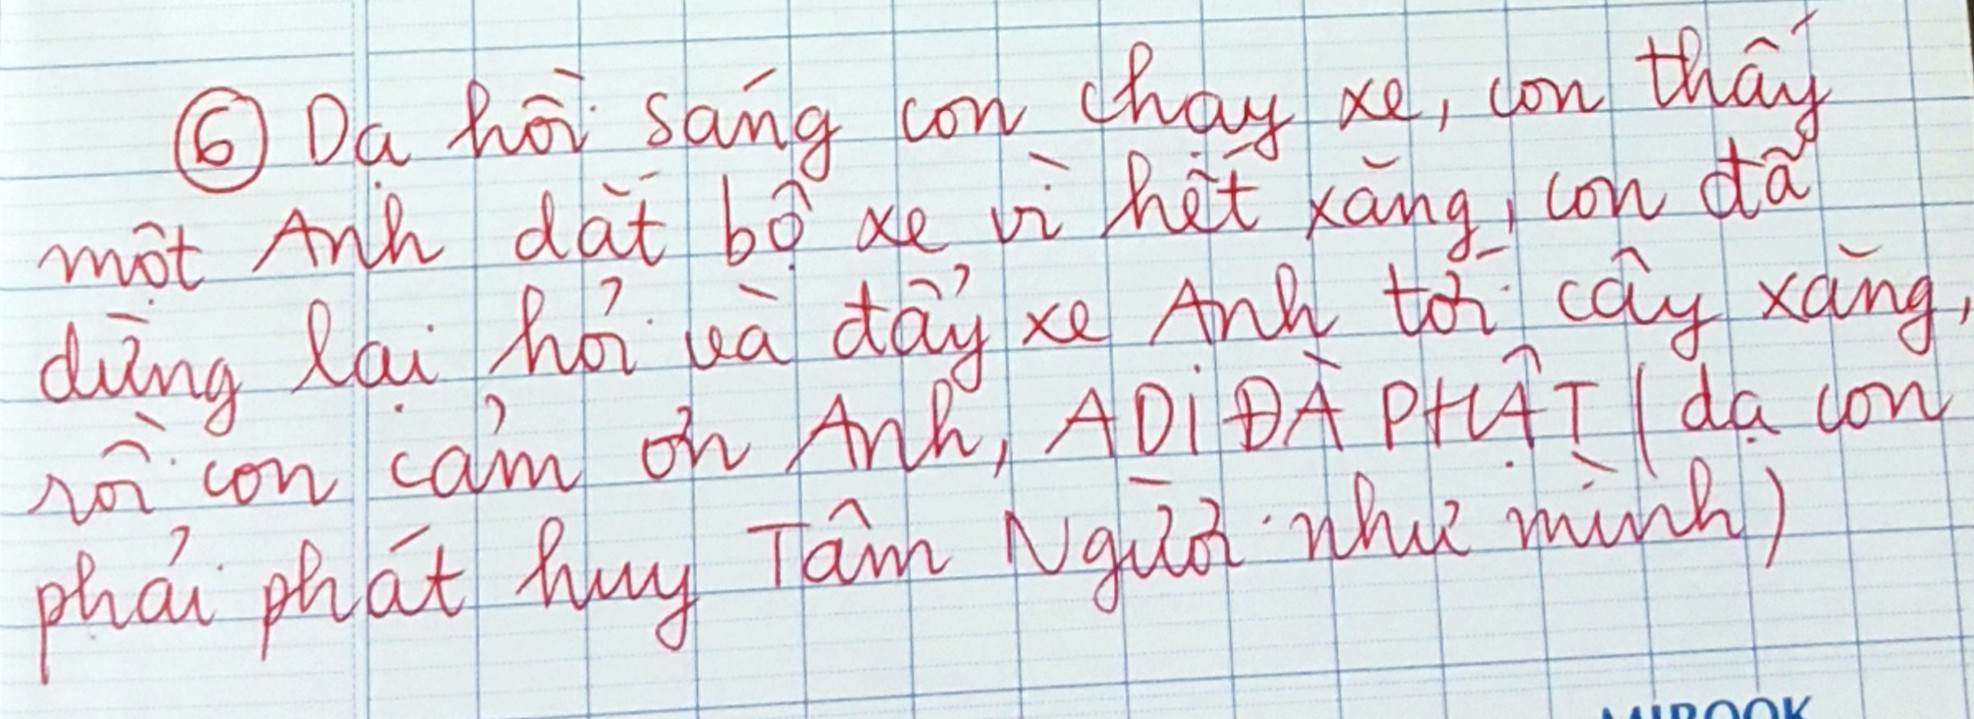 ⑥ Dạ hồi sáng con chạy xe, con thấy
một Anh dắt bộ xe vì hết xăng, con đã
dừng lại hỏi và đẩy xe Anh tới cây xăng,
rồi con cảm ơn Anh, ADIĐÀ PHẬT (dạ con
phải phát huy Tâm Người như mình)